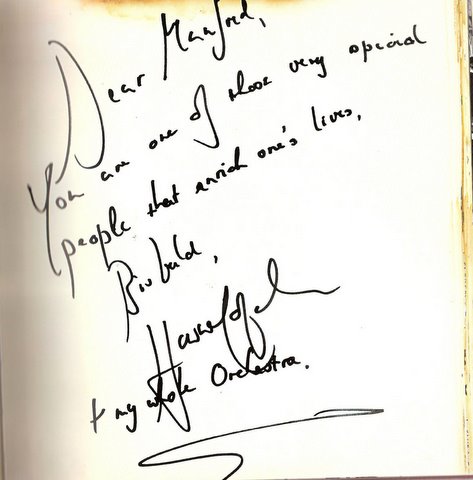 Dear Manfred,
You are one of those very special
people that enrich one's lives,
Bis bald,
+ my whole Orchestra.